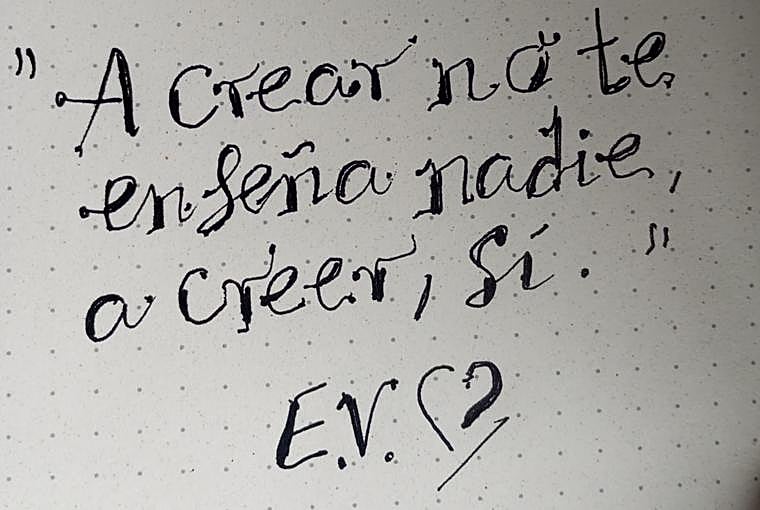 "A crear no te
enseña nadie,
a creer, sí."
E.V.